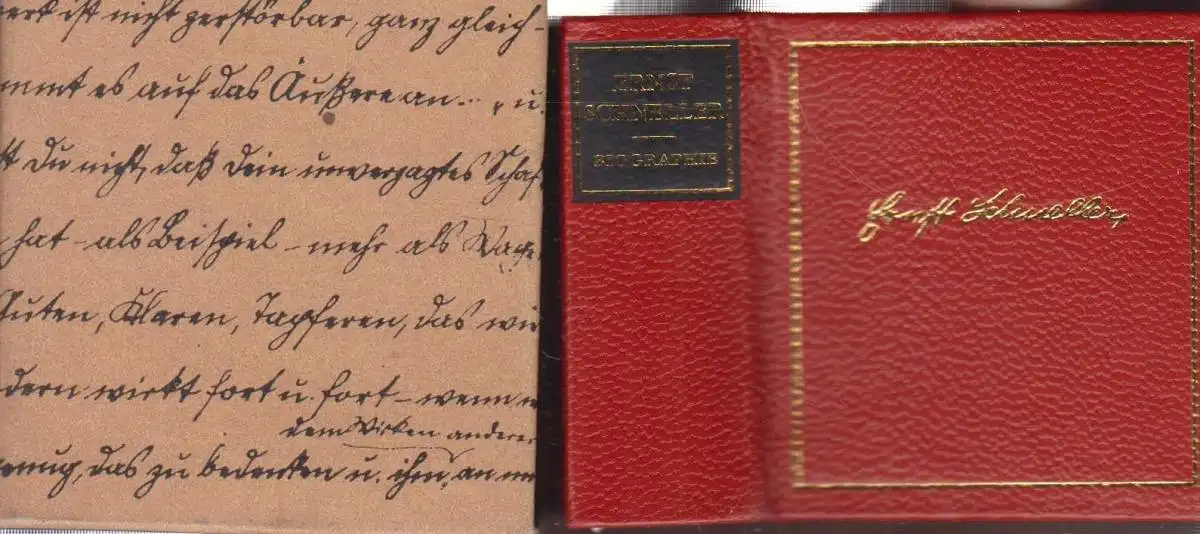 werk ist nicht zerstörbar, ganz gleich-
mmt es auf das Äußere an... u.
st Du nicht, daß Dein unverzagtes Schaf
hat – als Beispiel – mehr als
Guten, Klaren, Tapferen, das wir
dern wirkt fort u. fort – wenn
dem Wirken anderer
genug, das zu bedenken u. ihm, an
ERNST
SCHNELLER
BIOGRAPHIE
Ernst Schneller